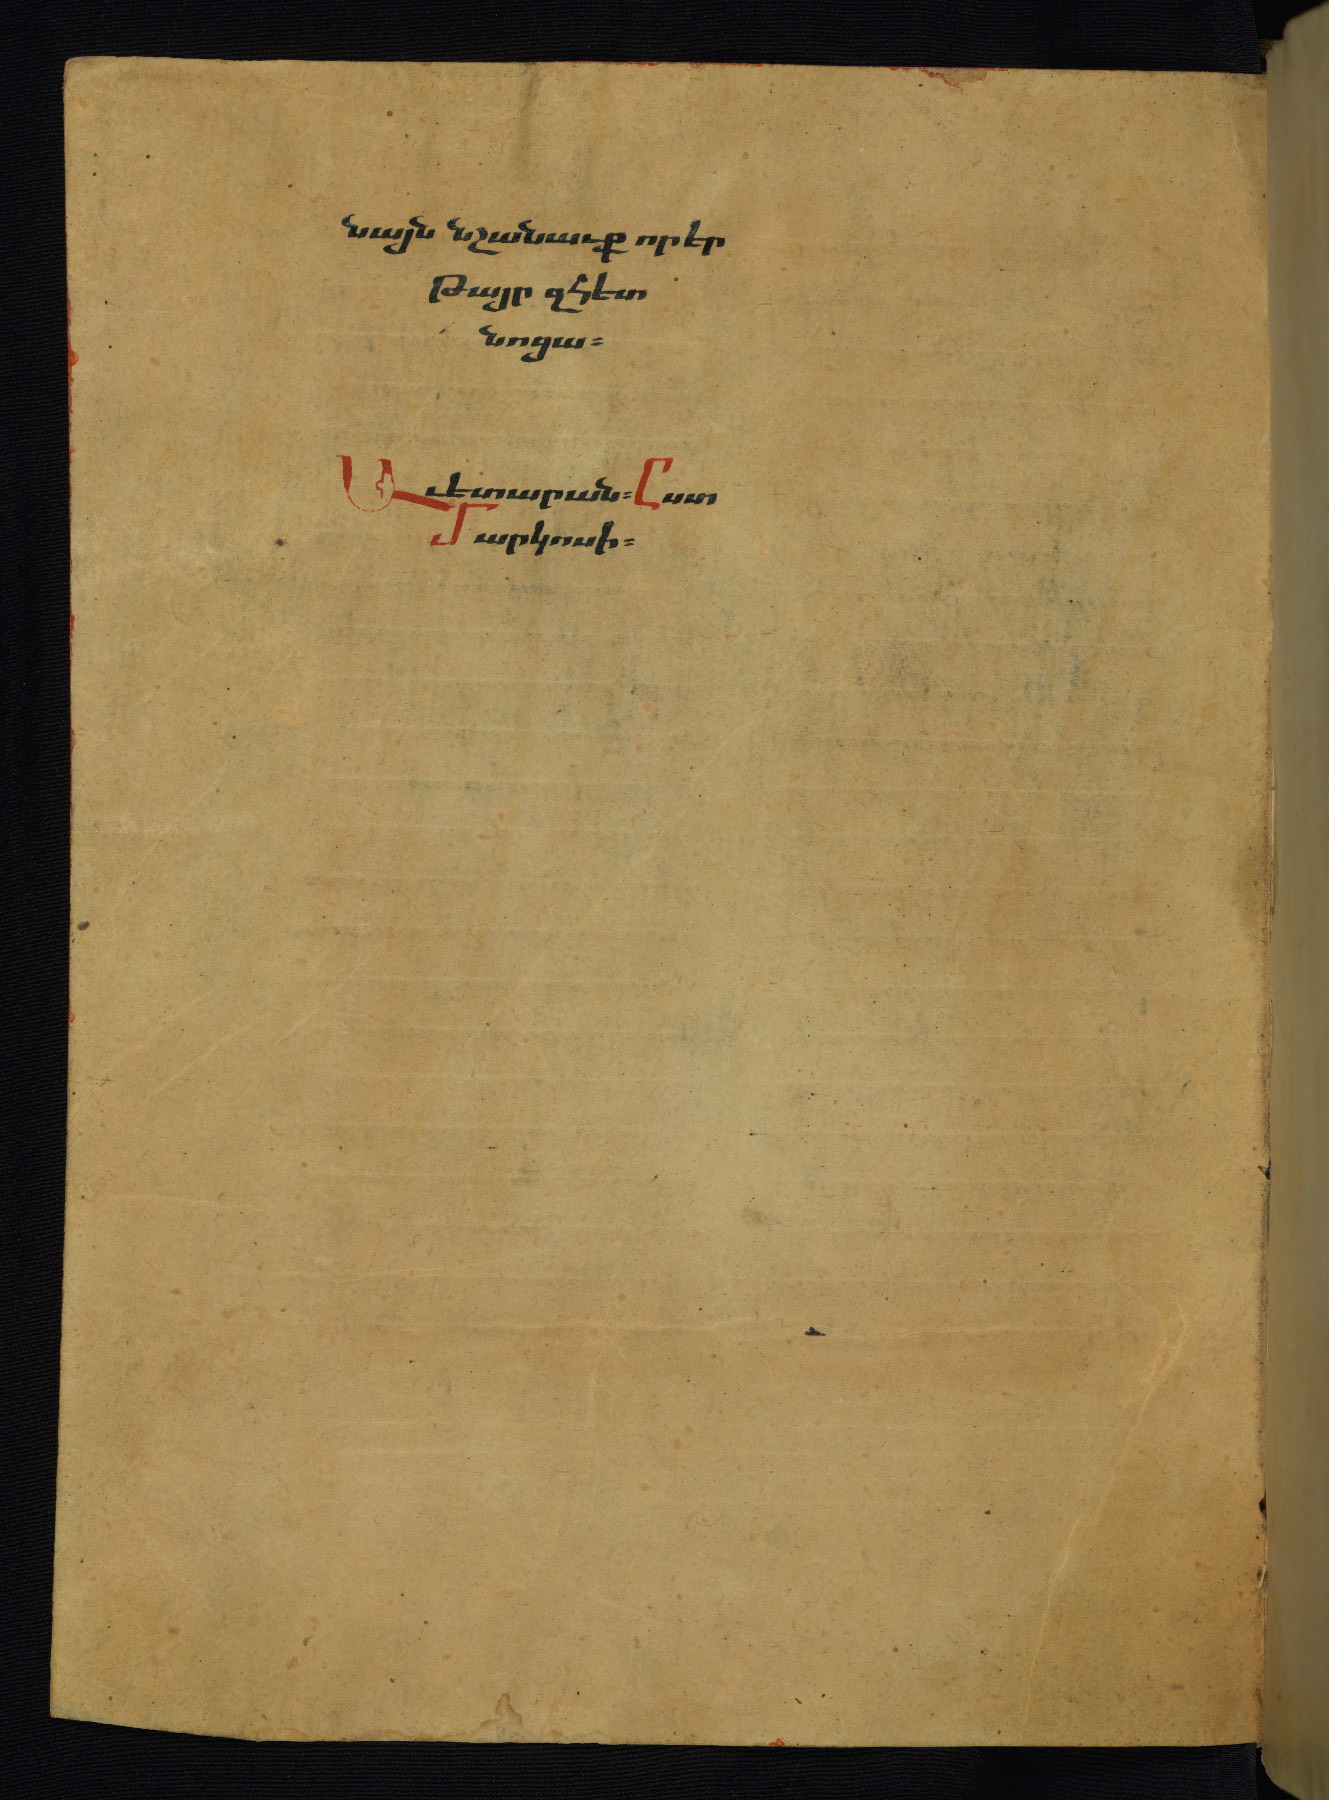 նայն նշանաւք որ եր
թայր զհետ
նոցա։
Աւետարան։ Ըստ
Մարկոսի։